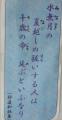 水無月の
夏越しの祓いする人は
千歳の命 延ぶといふなり